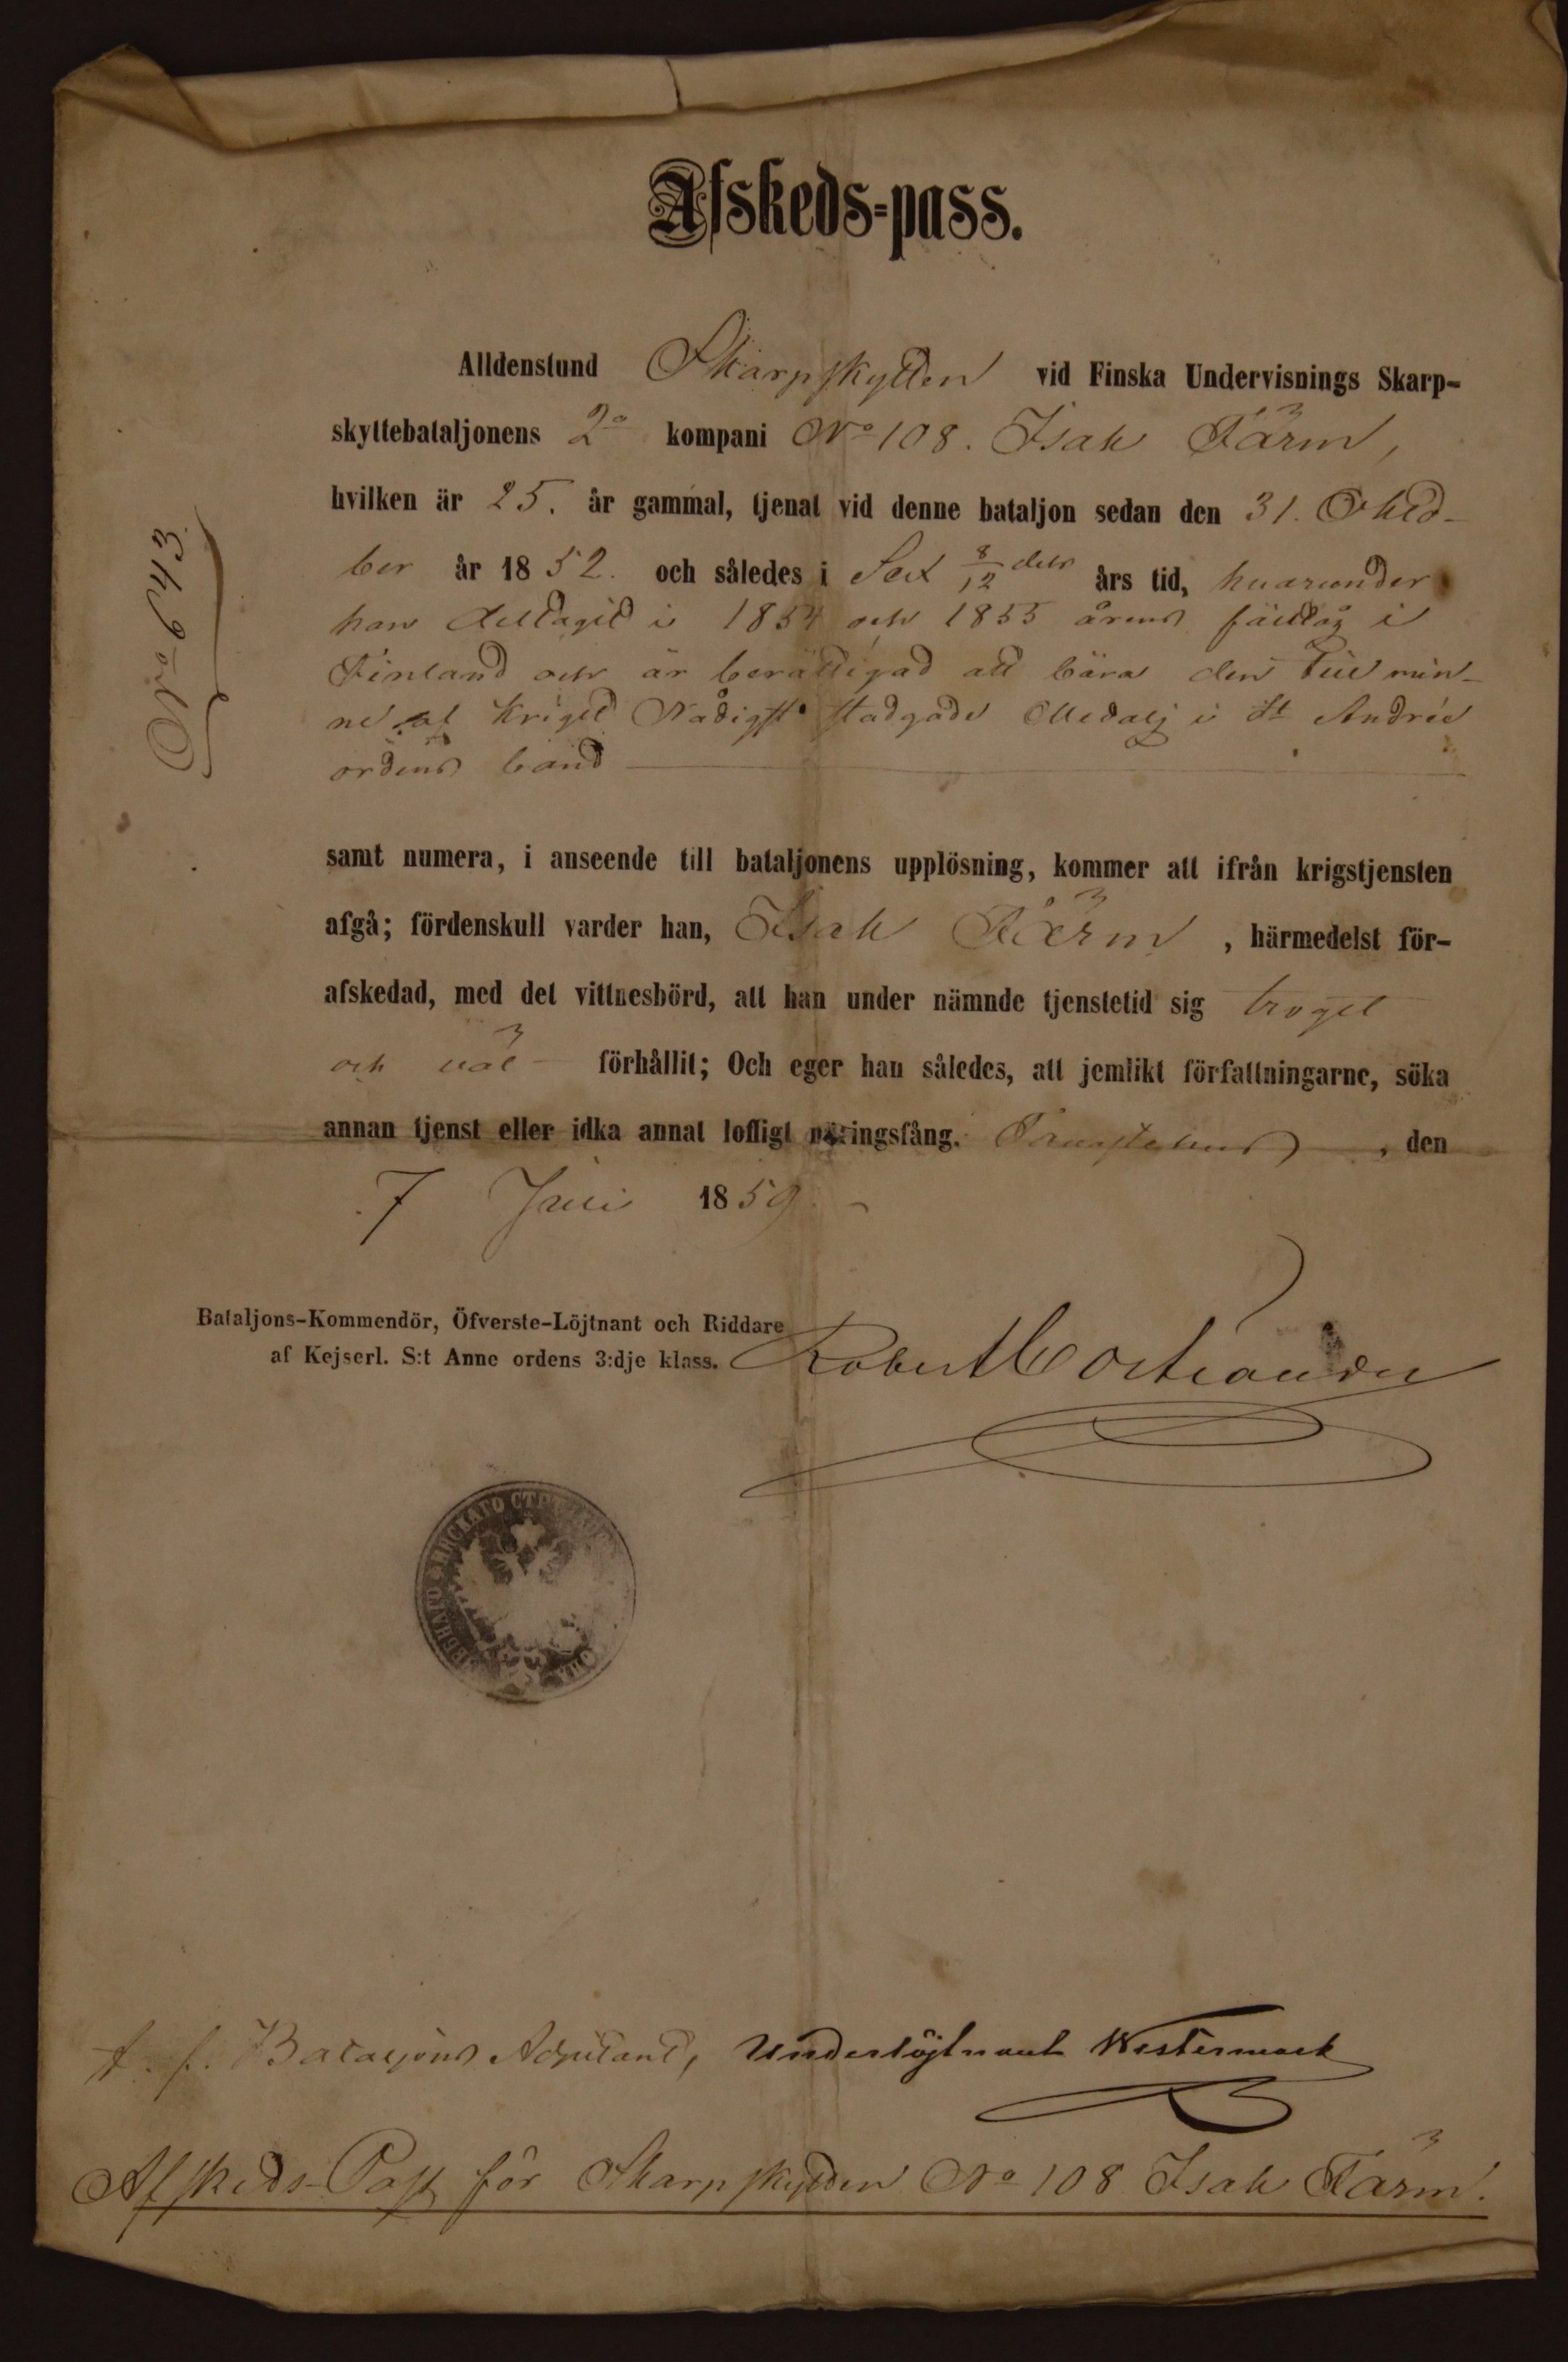 Afskeds-pass.
Alldenstund Skarpskytten vid Finska Undervisnings Skarp-
skyttebataljonens 2a kompani No 108. Isak Färm,
hvilken är 25. år gammal, tjenat vid denne bataljon sedan den 31. Okto-
ber år 1852. och således i Sex 8/12 dels års tid, hvarunder
han deltagit i 1854 och 1855 årens fälttåg i
Finland och är berättigad att bära den till min-
ne af kriget Nådigst stadgade Medalj i St Andrée
ordens band
samt numera, i anseende till bataljonens upplösning, kommer att ifrån krigstjensten
afgå; fördenskull varder han, Isak Färm, härmedelst för-
afskedad, med det vittnesbörd, att han under nämnde tjenstetid sig troget
och väl förhållit; Och eger han således, att jemlikt författningarne, söka
annan tjenst eller idka annat loffligt näringsfång. Tavastehus, den
7 Juli 1859.
No 643
Bataljons-Kommendör, Öfverste-Löjtnant och Riddare
af Kejserl. S:t Anne ordens 3:dje klass. Robert Costiander
ВЕНАГО ФИНСКАГО СТР
t. f. Bataljons Adjutant, Underlöjtnant Westermark
Afskeds-Pass för Skarpskytten No 108 Isak Färm.